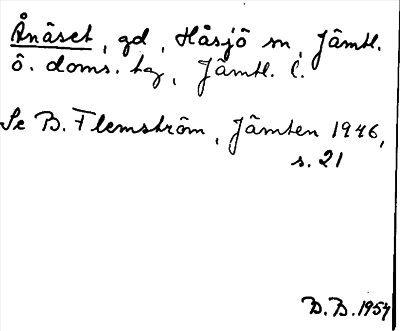 Ånäset, gd, Håsjö sn, Jämtl.
ö. doms. hg, Jämtl. l.
Se B. Flemström, Jämten 1946,
s. 21
B.B. 1954